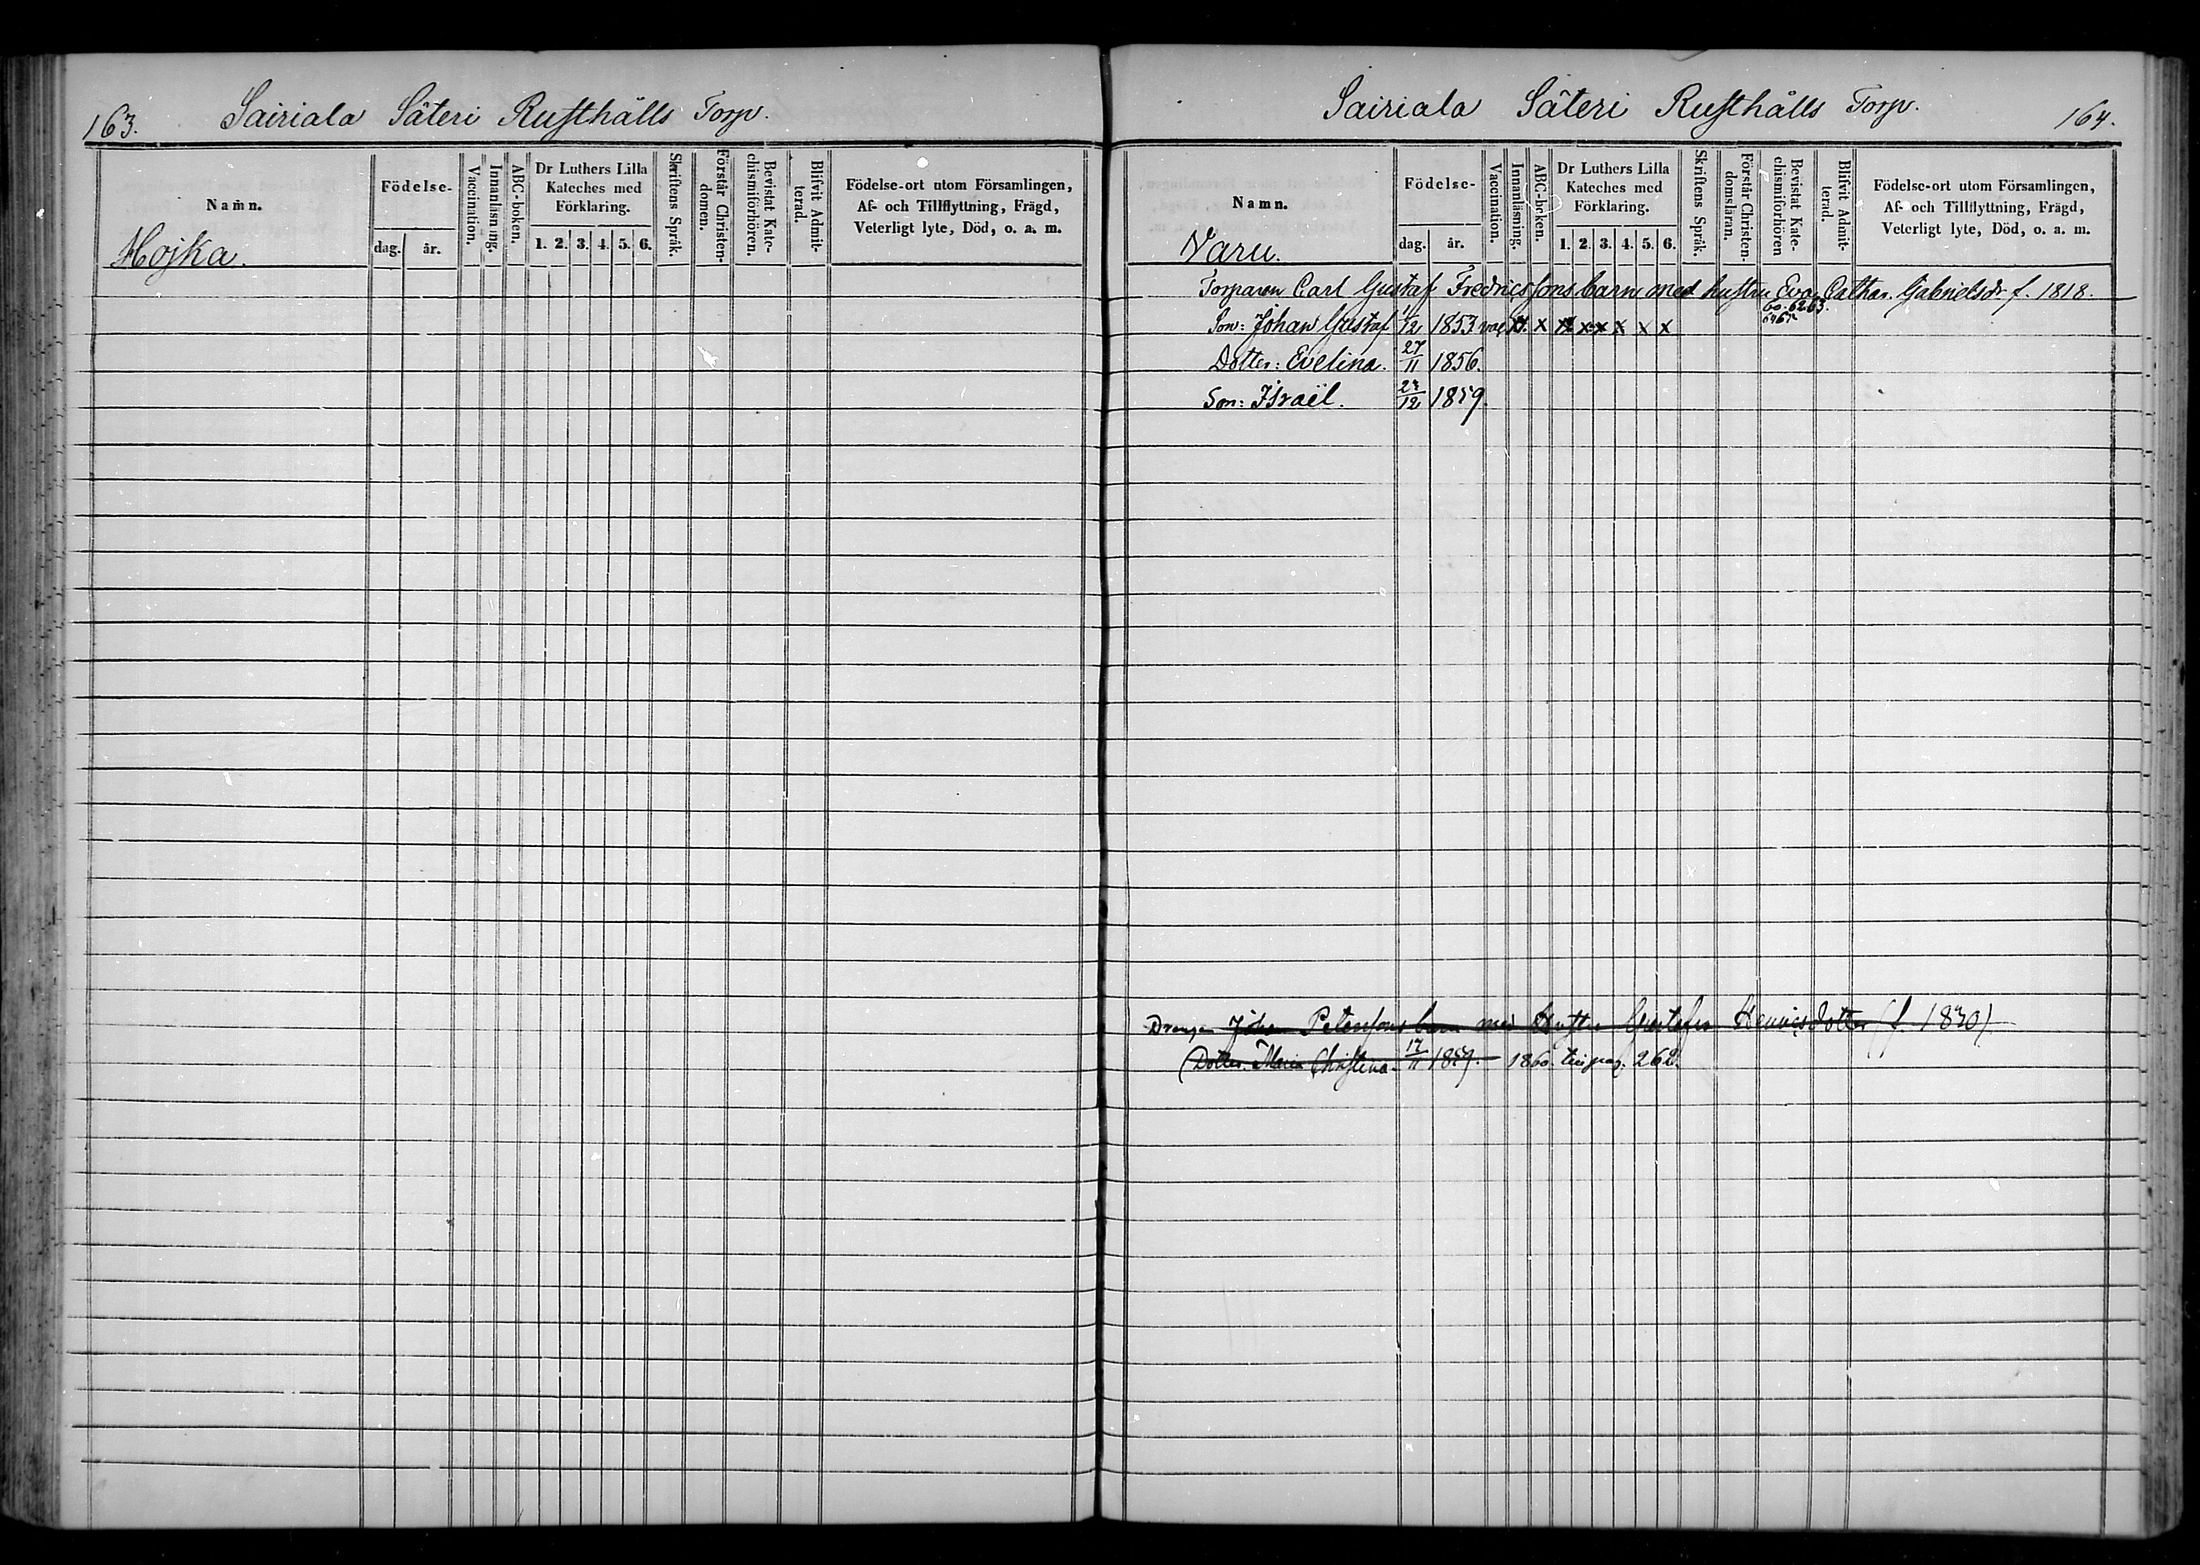 163. Sairiala Säteri Rusthålls Torp.
Namn.
Födelse-
dag. år.
Vaccination.
Innanläsning.
ABC-boken.
Dr Luthers Lilla
Kateches med
Förklaring.
1. 2. 3. 4. 5. 6.
Skriftens Språk.
Förstår Christen-
domen.
Bevistat Kate-
chismiförhören
Blifvit Admit-
terad.
Födelse-ort utom Församlingen,
Af- och Tillflyttning, Frägd,
Veterligt lyte, Död, o. a. m.
Hojka.
Sairiala Säteri Rusthålls Torp. 164.
Namn.
Födelse-
dag. år.
Vaccination.
Innanläsning.
ABC-boken.
Dr Luthers Lilla
Kateches med
Förklaring.
1. 2. 3. 4. 5. 6.
Skriftens Språk.
Förstår Christen-
domsläran.
Bevistat Kate-
chismiförhören
Blifvit Admit-
terad.
Födelse-ort utom Församlingen,
Af- och Tillflyttning, Frägd,
Veterligt lyte, Död, o. a. m.
Varu.
Torparen Carl Gustaf Fredricssons barn med hustru Eva Cathar. Gabrielsdr f. 1818.
Son: Johan Gustaf 1/12 1853 vac x x x x x x x x 60. 62 63.
64 65
Dotter: Evelina. 27/11 1856.
Son: Israël. 23/12 1859.
Drengen Johan Peterssons barn med Hustru Gustafva Henricsdotter (f. 1830)
(Dotter Maria Christina. 17/11 1859. 1860. till pag. 262.